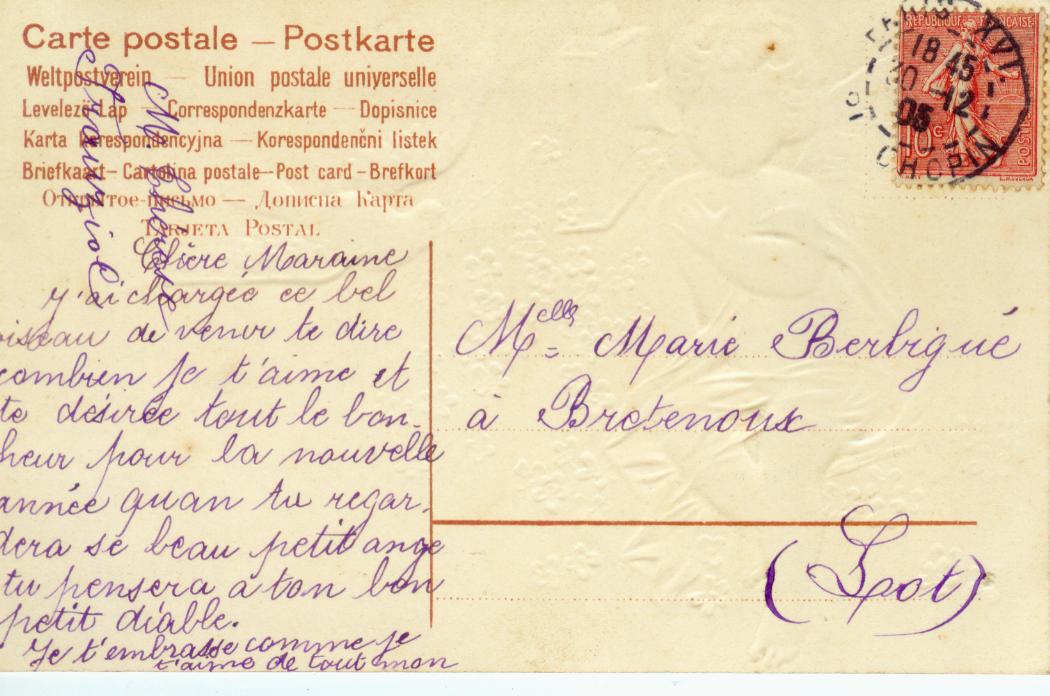 Carte postale — Postkarte
Weltpostverein — Union postale universelle
Levelező-Lap — Correspondenzkarte — Dopisnice
Karta Korespondencyjna — Korespondenčni listek
Briefkaart — Cartolina postale — Post card — Brefkort
Открытое письмо — Дописна Карта
Tarjeta Postal
Chère Maraine
y'ai chargée ce bel
oiseau de venir te dire
combien je t'aime et
te désirée tout le bon-
heur pour la nouvelle
année quan tu regar-
dera se beau petit ange
tu pensera a ton bon
petit diable.
Je t'embrasse comme je
t'aime de tout mon
REPUBLIQUE FRANÇAISE
10c
POSTES
PARIS XVI
18 45
30 -12
05
CHOPIN
Melle Marie Berbigué
à Bretenoux
(Lot)